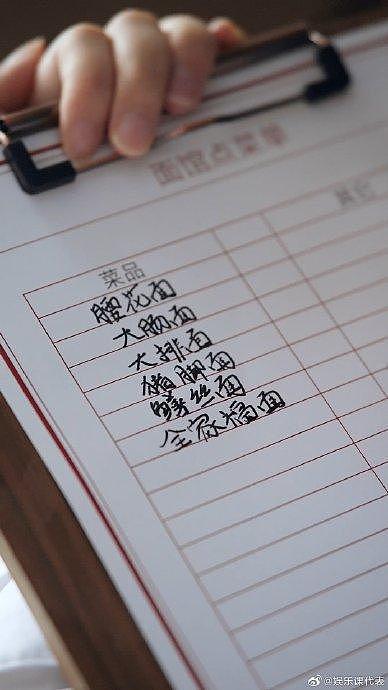 面馆点菜单
菜品
其它
腰花面
大肠面
大排面
猪脚面
鳝丝面
全家福面
@娱乐课代表